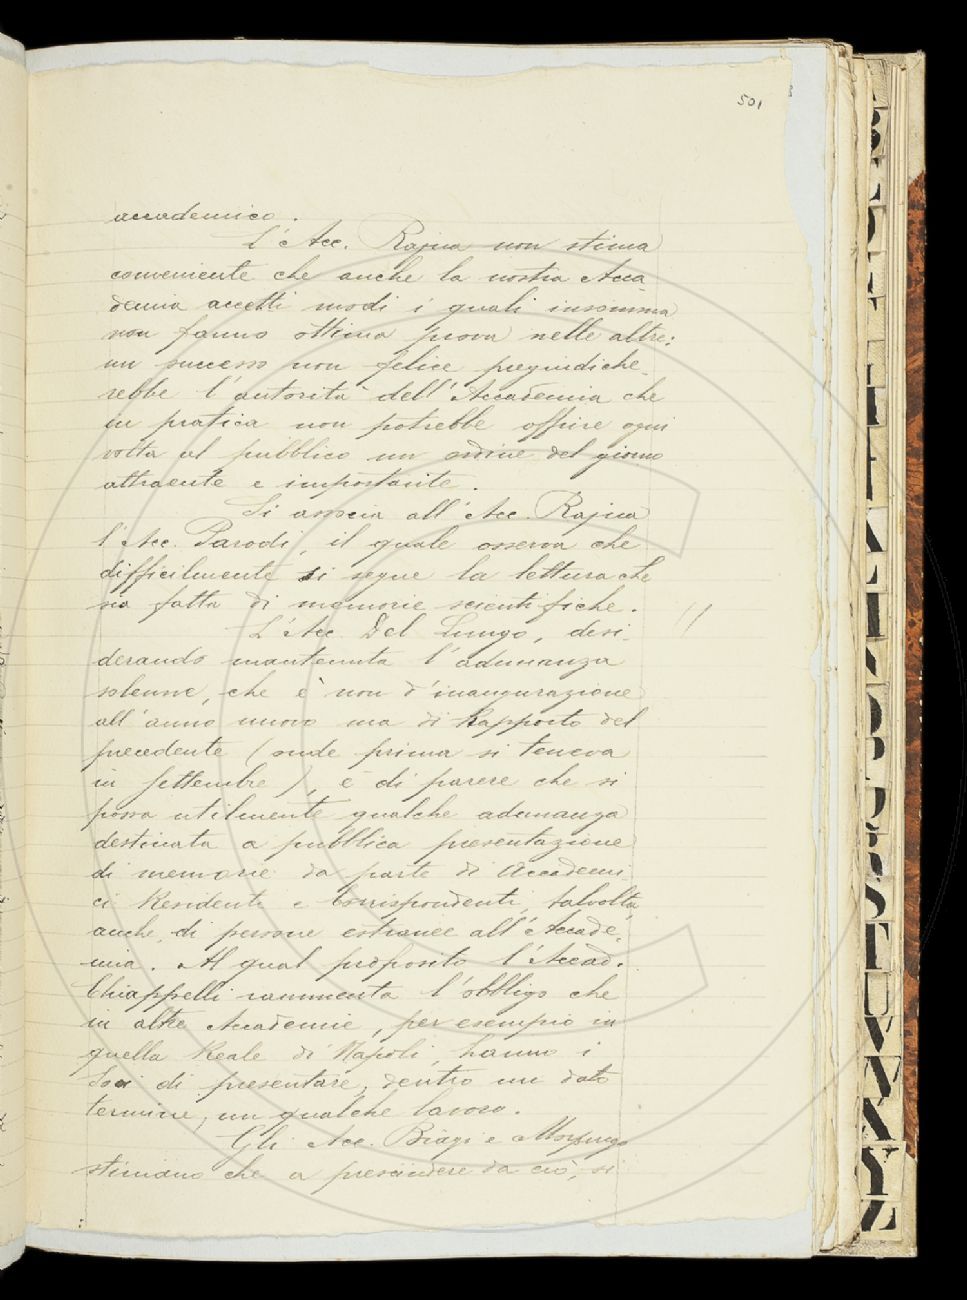 501
accademico.
L'Acc. Rajna non stima
conveniente che anche la nostra Acca
demia accetti modi i quali insomma
non fanno ottima prova nelle altre:
un successo non felice pregiudiche-
rebbe l'autorità dell'Accademia che
in pratica non potrebbe offrire ogni
volta al pubblico un ordine del giorno
attraente e importante.
Si associa all'Acc. Rajna
l'Acc. Parodi, il quale osserva che
difficilmente si segue la lettura che
sia fatta di memorie scientifiche.
L'Acc. Del Lungo, desi-
derando mantenuta l'adunanza
solenne, che è non d'inaugurazione
all'anno nuovo ma di Rapporto del
precedente (onde prima si teneva
in settembre), è di parere che si
possa utilmente qualche adunanza
destinata a pubblica presentazione
di memorie da parte di Accademi
ci Residenti e Corrispondenti, talvolta
anche di persone estranee all'Accade-
mia. Al qual proposito l'Accad.
Chiappelli rammenta l'obbligo che
in altre Accademie, per esempio in
quella Reale di Napoli, hanno i
Soci di presentare, dentro un dato
termine, un qualche lavoro.
Gli Acc. Biagi e Morpurgo
stimano che a prescindere da ciò, si
B
S
T
U
V
X
Y
Z